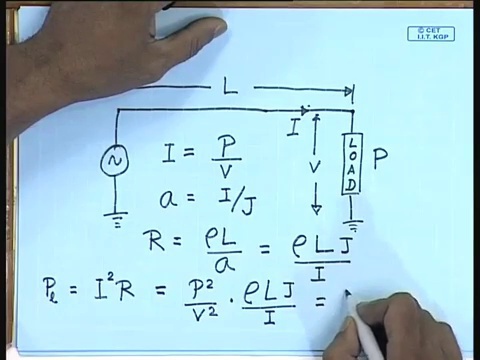 © CET
I.I.T. KGP
L
I
V
LOAD
P
~
I = P/V
a = I/J
R = ρL/a = ρLJ/I
Pₗ = I²R = P²/V² · ρLJ/I =